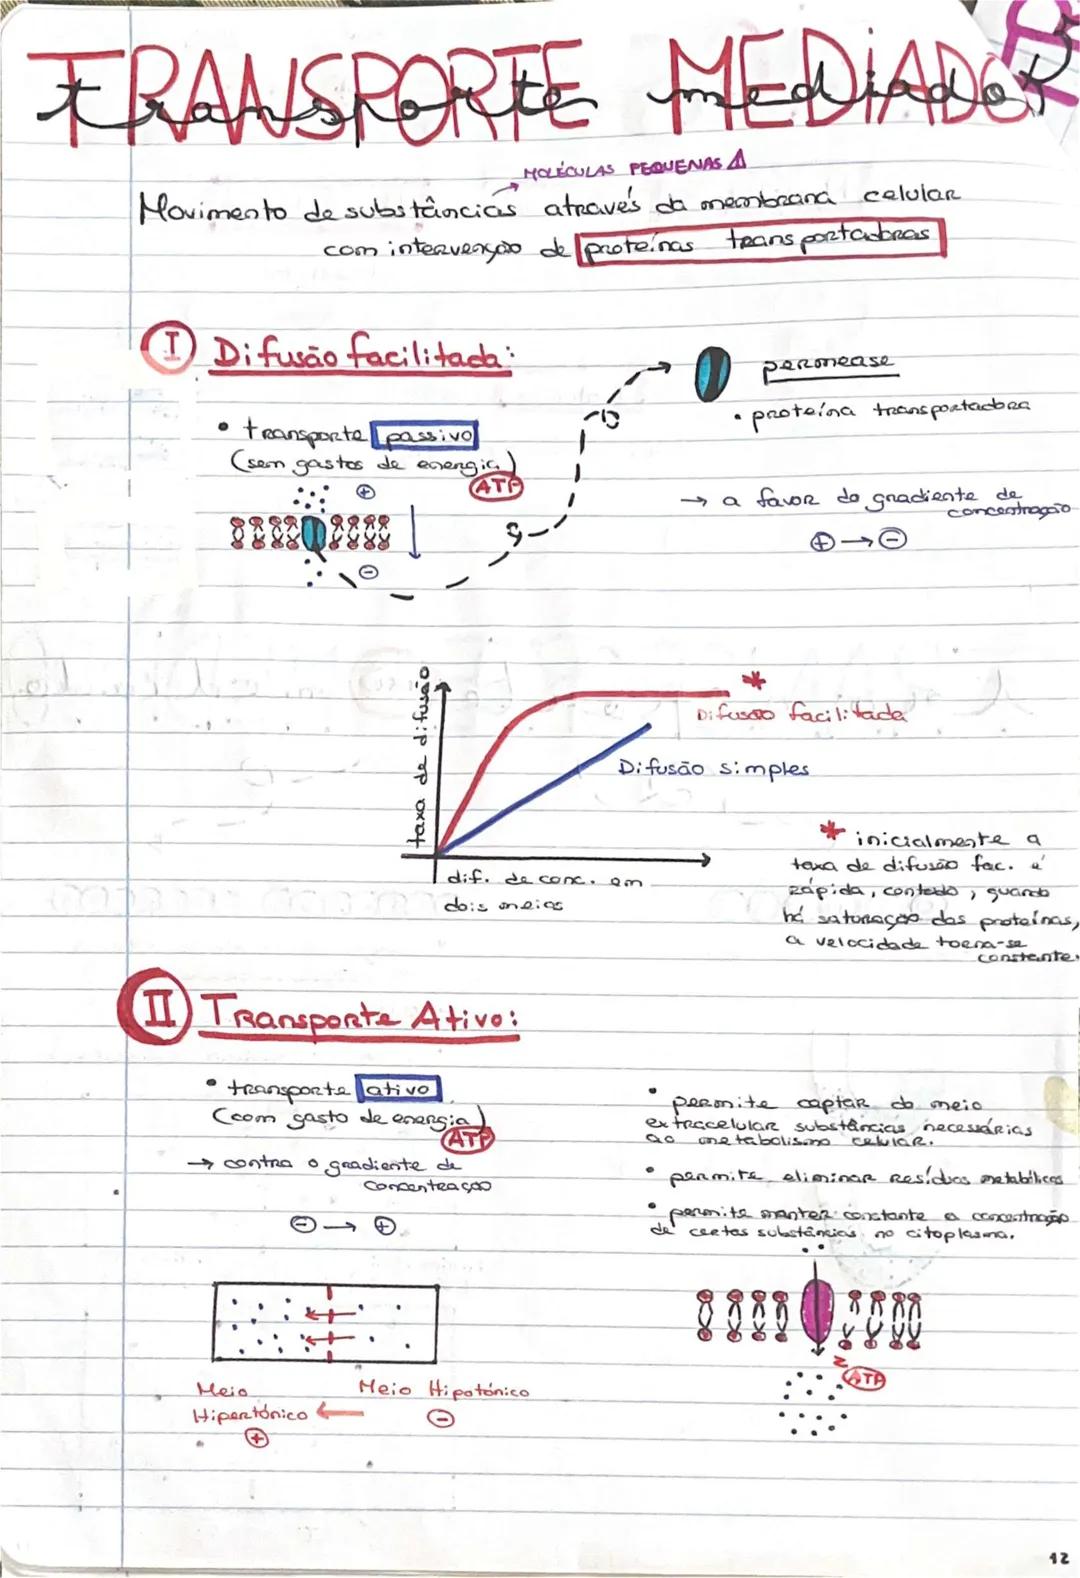 TRANSPORTE MEDIADO
transporte mediador
MOLÉCULAS PEQUENAS ⚠
Movimento de substâncias através da membrana celular
com intervenção de proteínas transportadoras
I Difusão facilitada:
permease
• proteína transportadora
• transporte passivo
(sem gastos de energia)
ATP
→ a favor do gradiente de
concentração
⊕ → ⊖
⊕
⊖
taxa de difusão
*
Difusão facilitada
Difusão simples
dif. de conc. em
dois meios
* inicialmente a
taxa de difusão fac. é
rápida, contudo, quando
há saturação das proteínas,
a velocidade torna-se
constante.
II Transporte Ativo:
• transporte ativo
(com gasto de energia)
ATP
→ contra o gradiente de
concentração
⊖ → ⊕
• permite captar do meio
extracelular substâncias necessárias
ao metabolismo celular.
• permite eliminar resíduos metabólicos
• permite manter constante a concentração
de certas substâncias no citoplasma.
ATP
Meio
Hipertónico ←
⊕
Meio Hipotónico
⊖
12